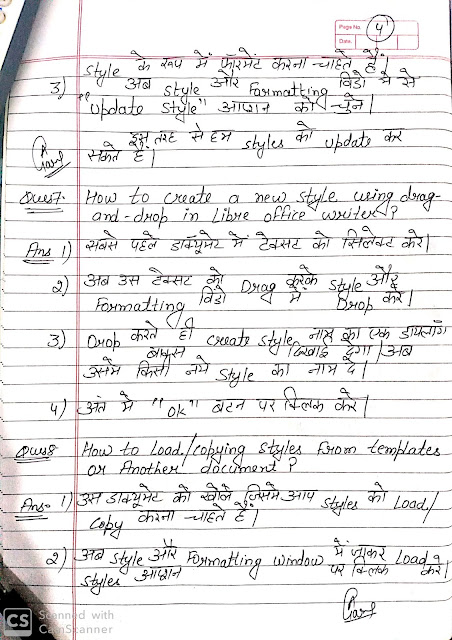 Page No. 4
Date.
style के रूप में फॉरमेट करना चाहते हैं|
3) अब style और Formatting विंडो मे से
"update style" आप्शन को चुने|
इस तरह से हम styles को update कर
सकते हैं|
Ques7. How to create a new style using drag-
and-drop in Libre office writer?
Ans 1) सबसे पहले डॉक्यूमेट में टेक्सट को सिलेक्ट करे|
2) अब उस टेक्सट को Drag करके style और
Formatting विंडो में Drop करें|
3) Drop करते ही create style नाम का एक डायलॉग
बाक्स दिखाई देगा |अब
उसमे किसी नये style का नाम दे|
4) अंत मे "ok" बटन पर क्लिक करे|
Ques8 How to Load/copying styles From templates
or Another document?
Ans. 1) उस डाक्यूमेट को खोले जिसमे आप styles को Load/
Copy करना चाहते हैं|
2) अब style और Formatting window में जाकर Load
styles ऑप्शन पर क्लिक करे|
CS Scanned with
CamScanner